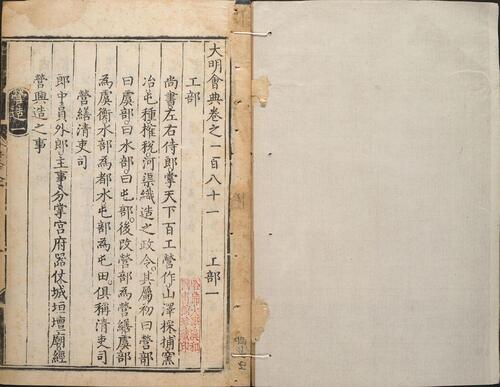 大明會典卷之一百八十一 工部一
工部
尚書左右侍郎掌天下百工營作山澤採捕窯
冶屯種權稅河渠織造之政令其屬初曰營部
曰虞部曰水部曰屯部後改營部為營繕虞部
為虞衡水部為都水屯部為屯田俱稱清吏司
營繕清吏司
郎中員外郎主事分掌宮府器仗城垣壇廟經
營興造之事
營造一